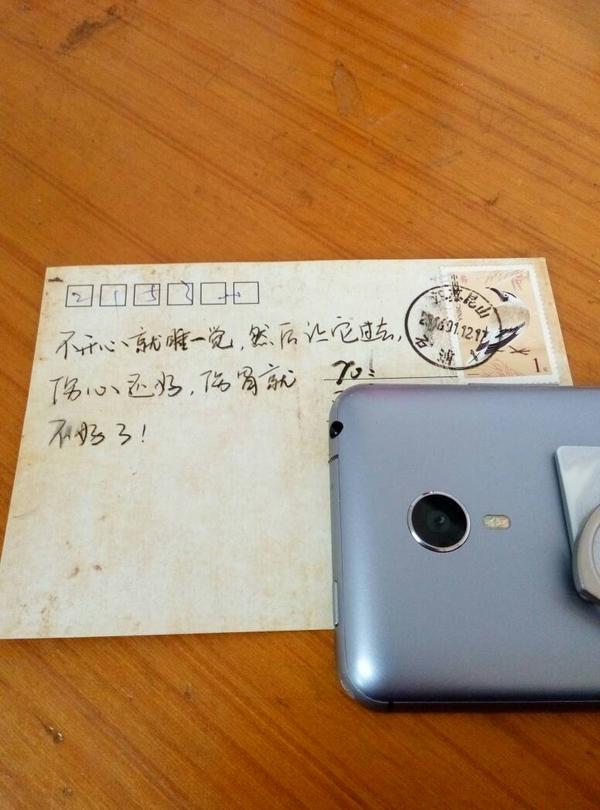 2153
不开心就睡一觉,然后让它过去,
伤心还好,伤胃就
不好了!
To:
江苏昆山
2016.01.12.17